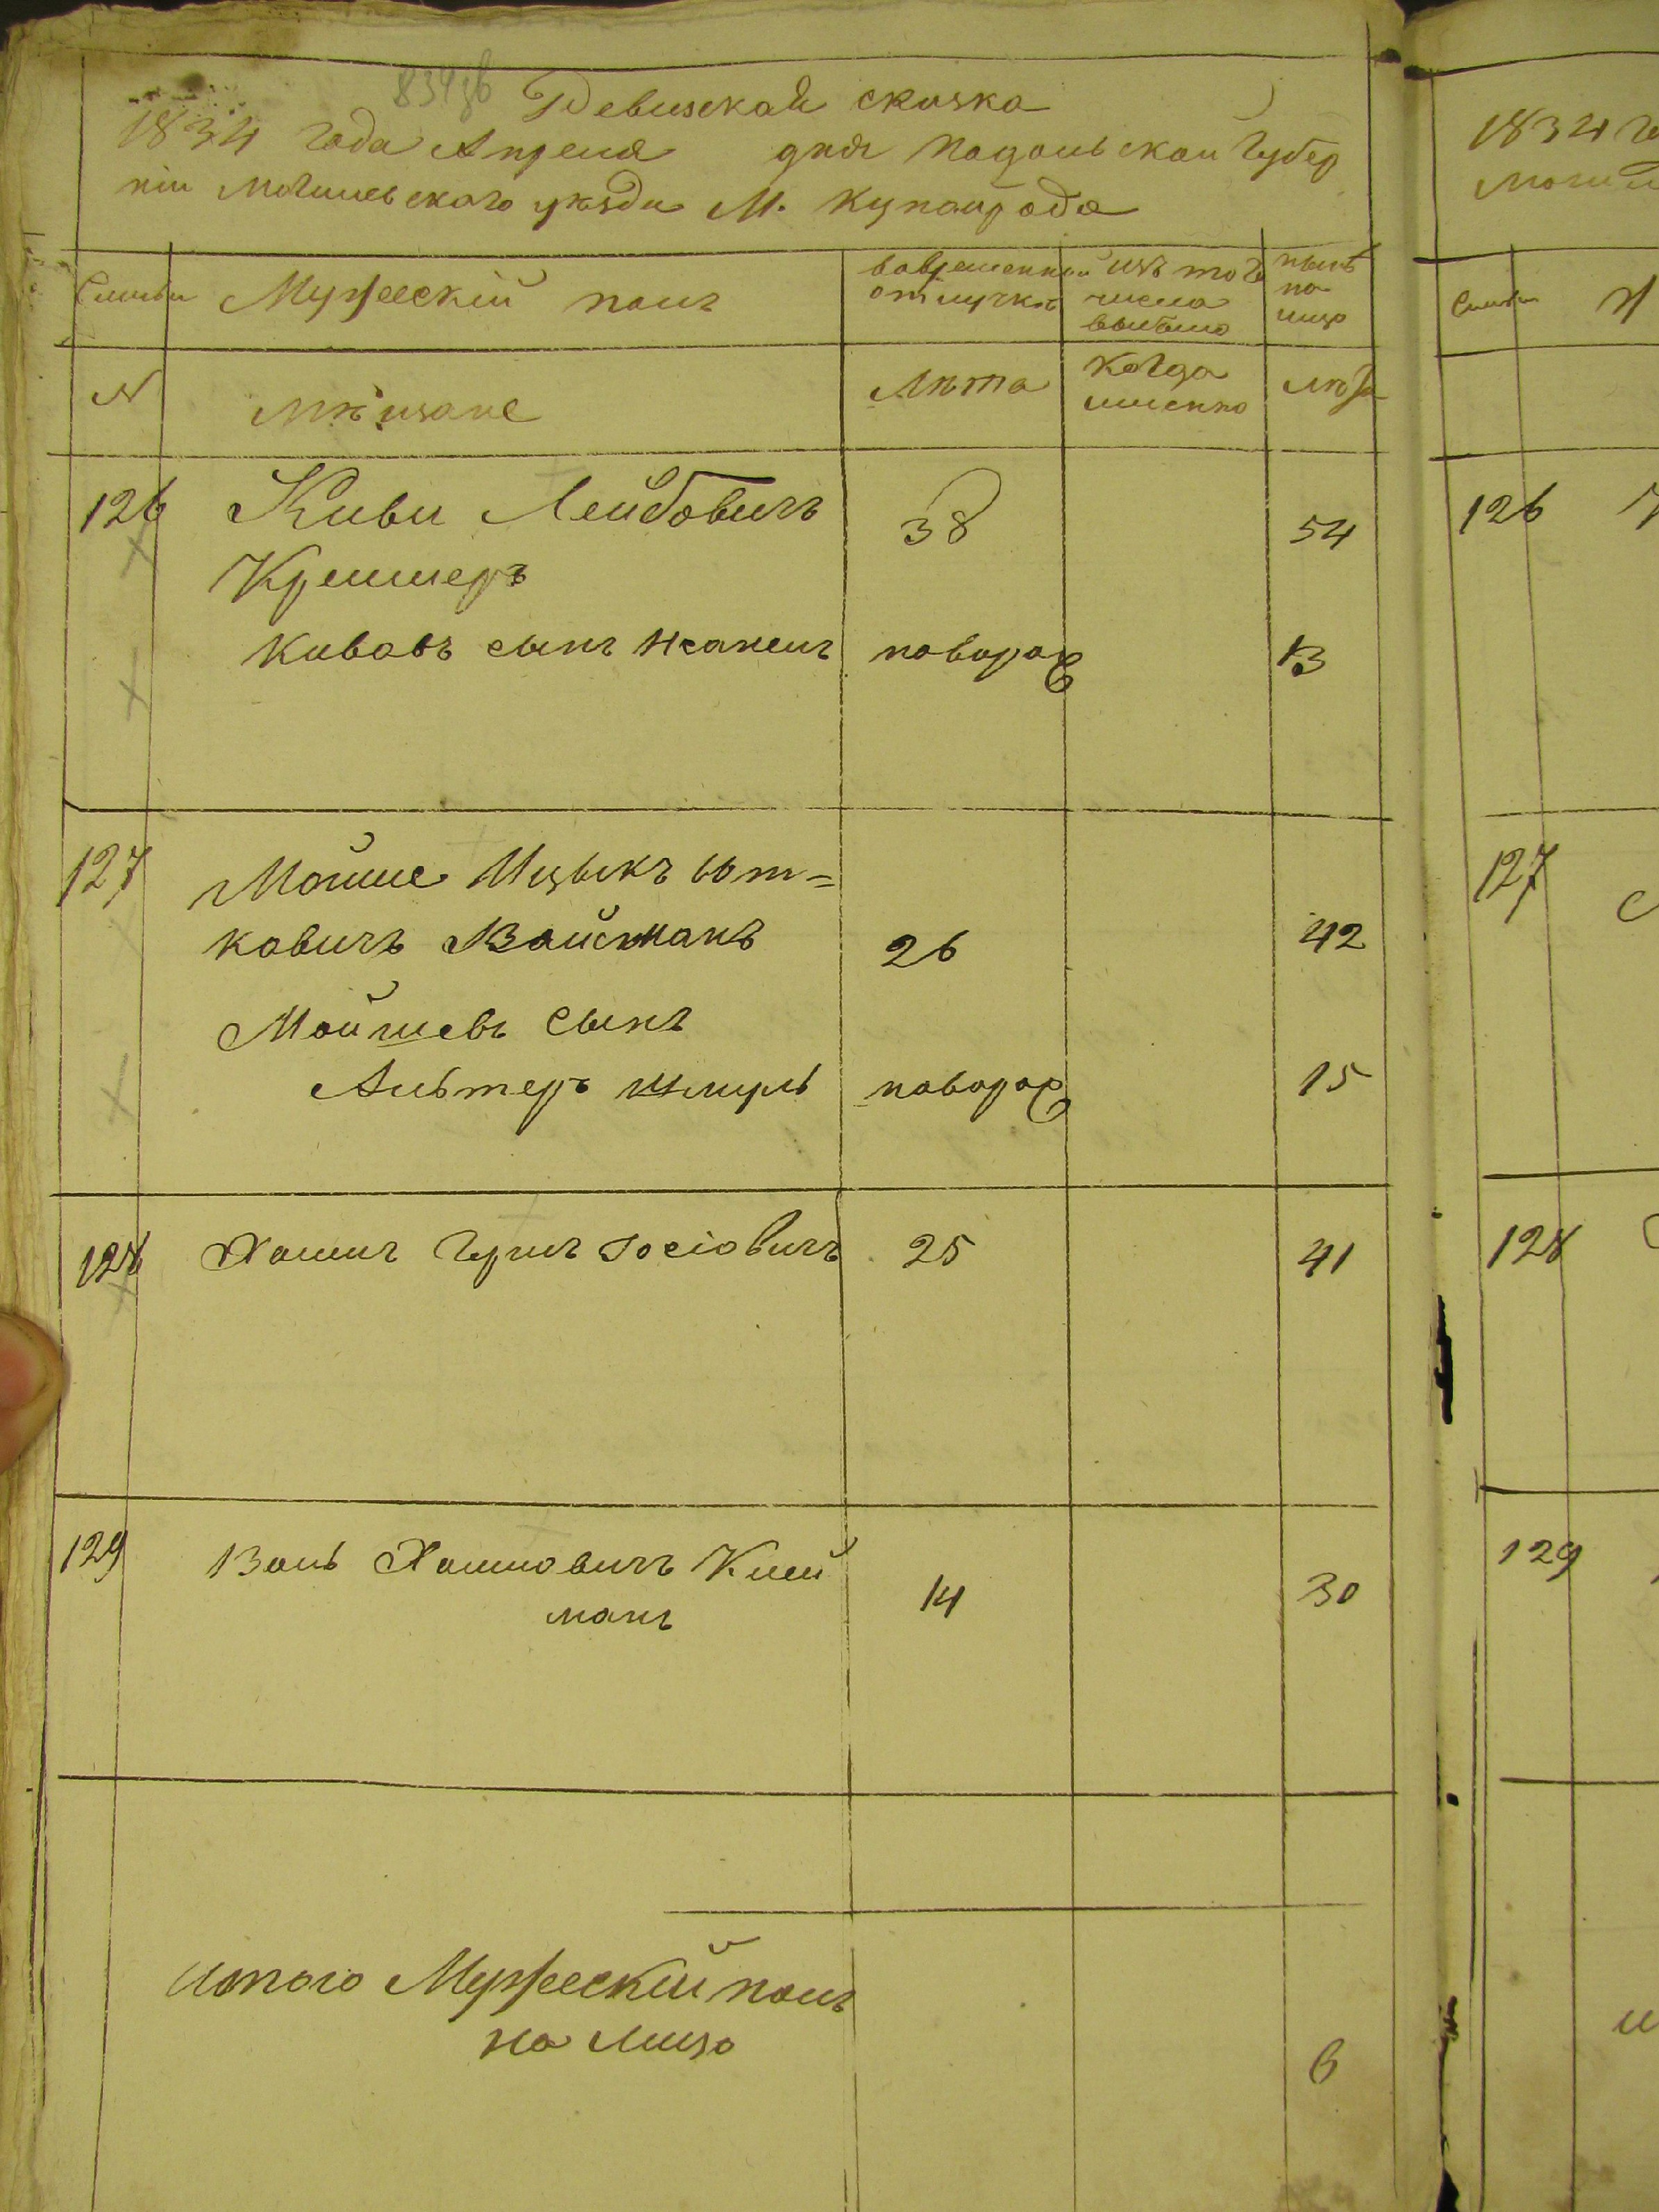 Ревизская сказка
1834 года Апреля дня Подольской Губер
ніи Могилевскаго уѣзда М. Купайгрода
Семьи Мужескій полъ вовременной отлучкѣ изъ того числа выбыло нынѣ на лицо
N мѣщане Лѣта Когда именно лѣта
126 Киви Лейбовичъ 38 54
Кремеръ
Кивовъ сынъ поворож 13
127 Мошие Ицыкъ Ют=
ковичъ Вайсманъ 26 42
Мойшевъ сынъ
Альтеръ Шмуль поворож 15
128 Хаимъ Гершъ Іосіовичъ 25 41
129 Воль Хаимовичъ Клей
манъ 14 30
Итого Мужескій полъ
на лицо 6
1834 го
Могил
Семьи
126
127
128
129